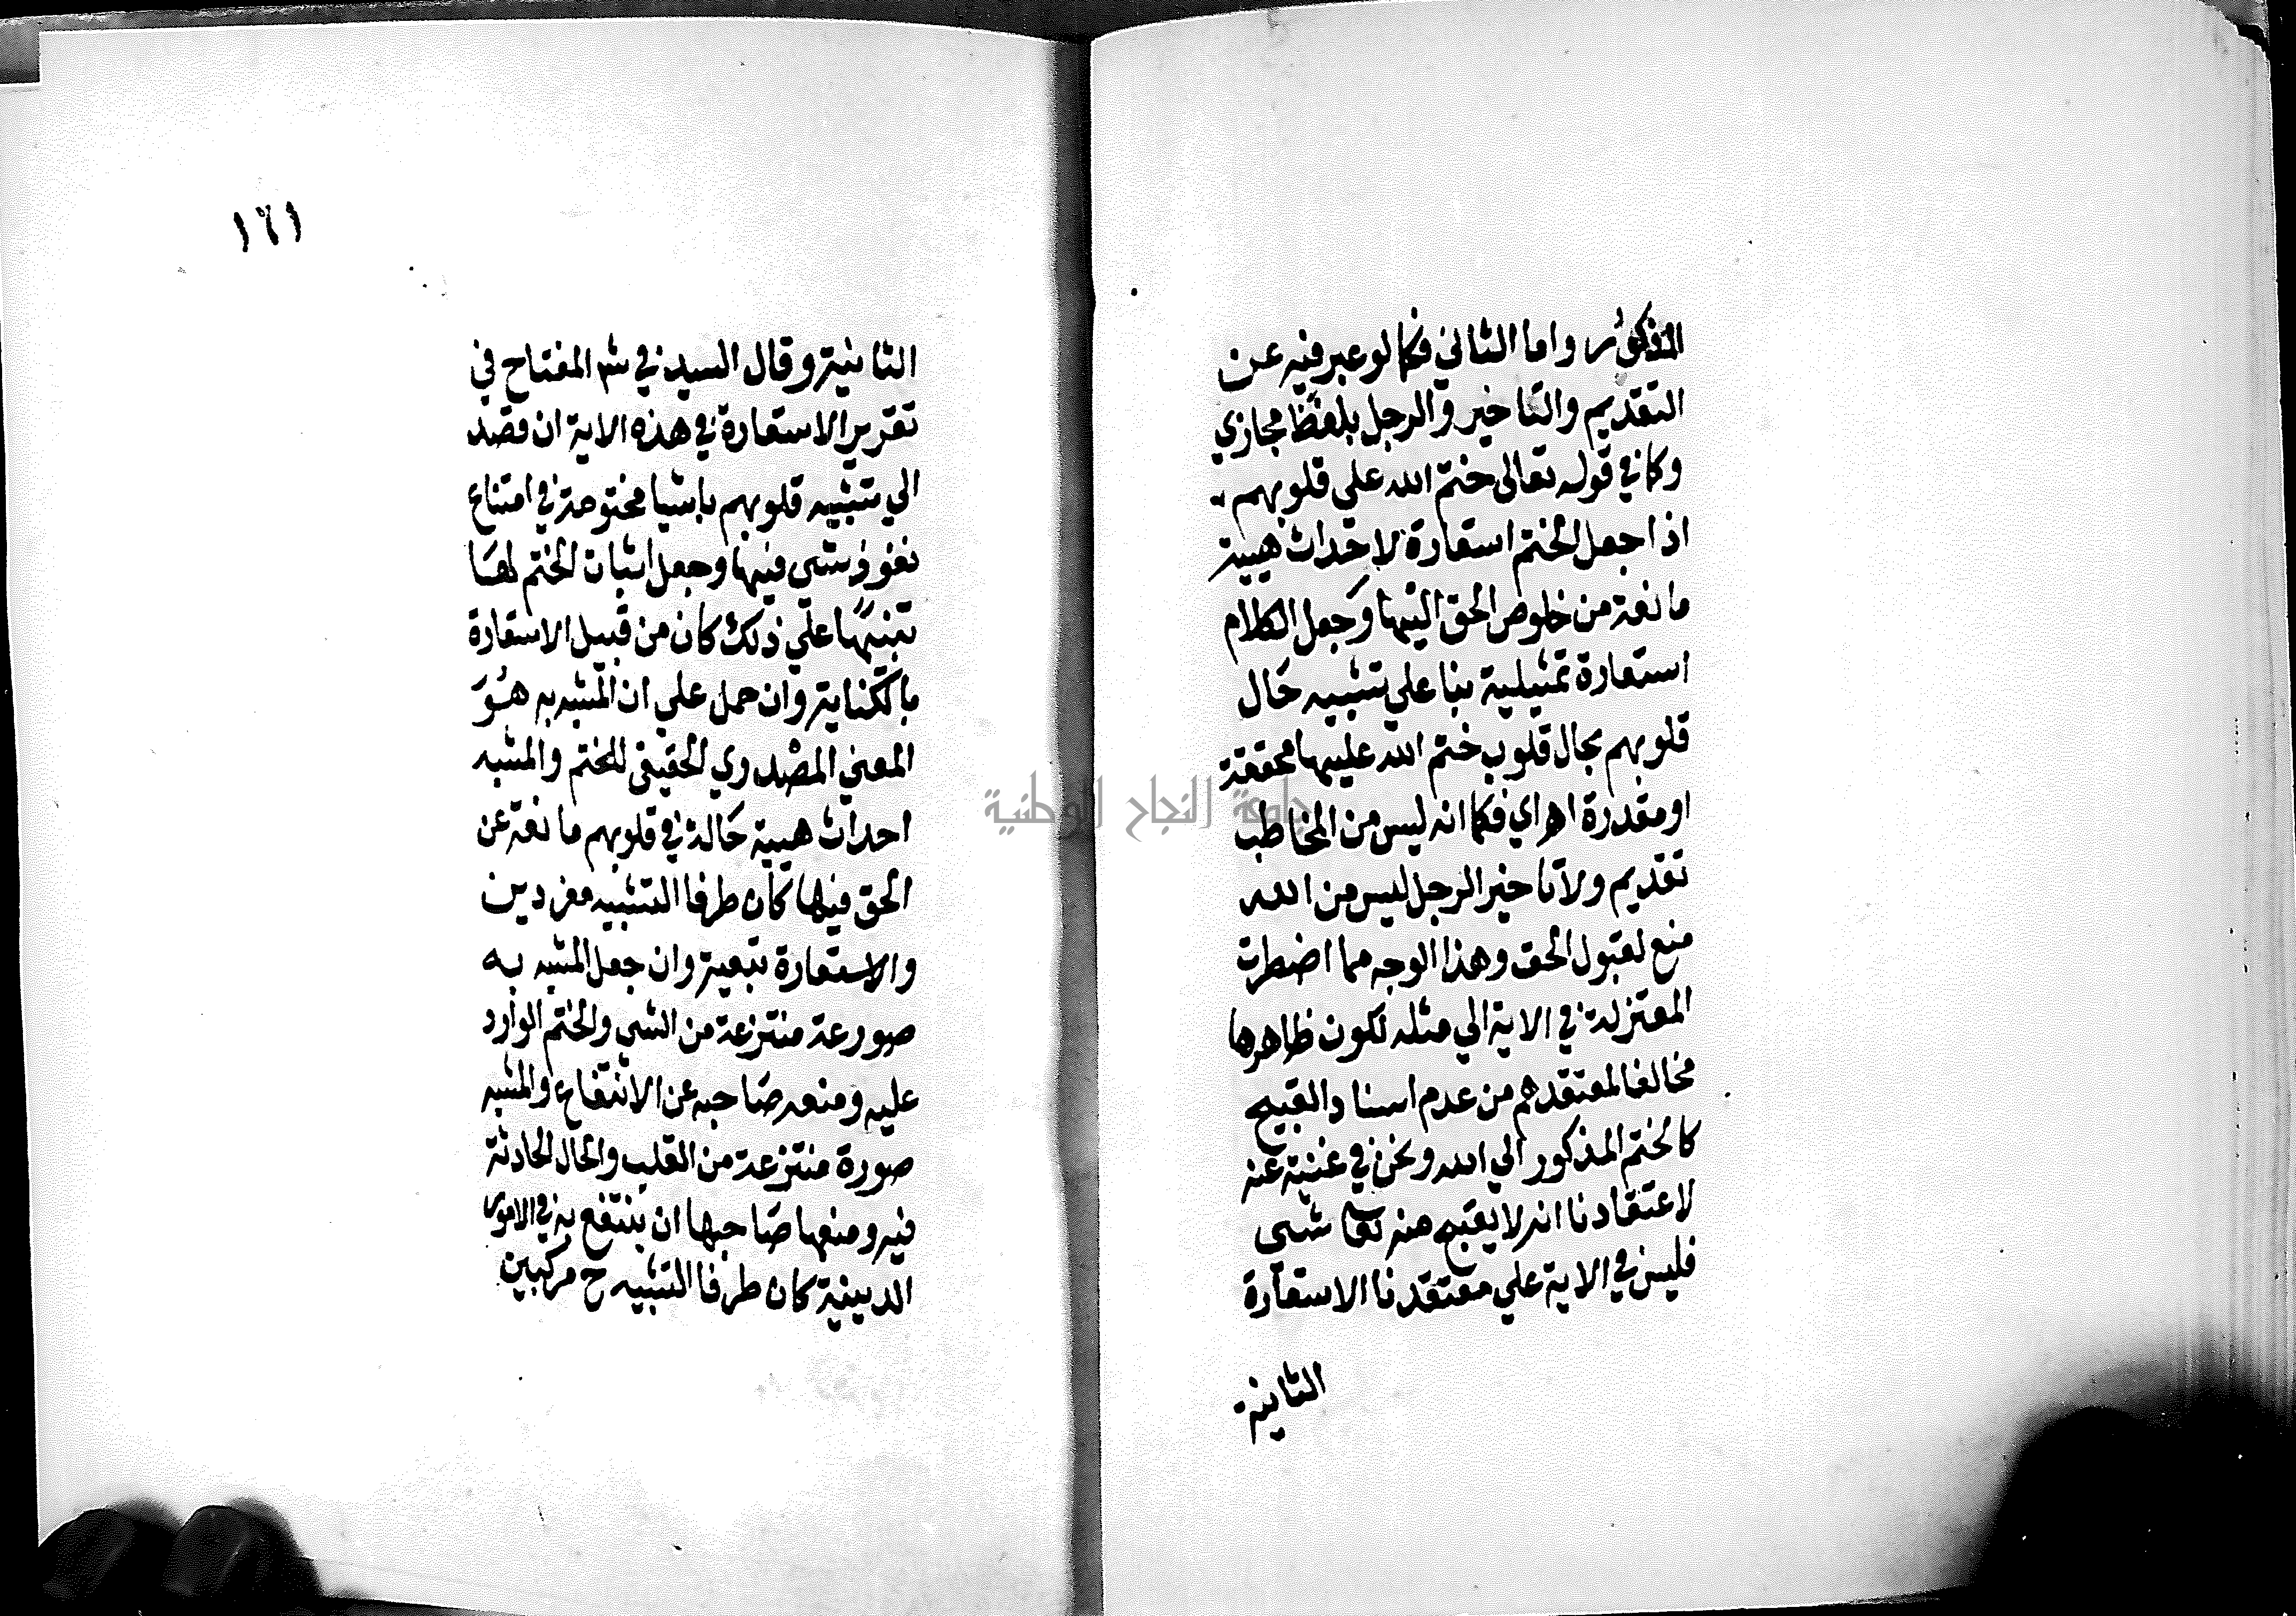 المذكور واما الثاني فكما لو عبر فيه عن
التقديم والتاخير والرجل بلفظ مجازي
وكما في قوله تعالى ختم الله على قلوبهم
اذا جعل الختم استعارة لاحداث هيية
مانعة من خلوص الحق اليها وجعل الكلام
استعارة تمثيلية بنا علي تشبيه حال
قلوبهم بحال قلوب ختم الله عليها محققة
او مقدرة اهـ اي فكما انه ليس من المخاطب
تقديم ولا تاخير الرجل ليس من الله
منع لقبول الحق وهذا الوجه مما اضطرت
المعتزلة في الاية الي مثله لكون ظاهرها
مخالفا لمعتقدهم من عدم اسناد القبيح
كالختم المذكور الي الله ونحن في غنية عنه
لاعتقادنا انه لا يقبح منه تعا شى
فليس في الاية علي معتقدنا الاستعارة
الثانية
١٦١
الثانية وقال السيد في شم المفتاح في
تقرير الاستعارة في هذه الاية ان قصد
الي تشبيه قلوبهم باشيا مختومة في امتناع
نفوذ شى فيها وجعل اثبات الختم لها
تنبيها علي ذلك كان من قبيل الاستعارة
بالكناية وان حمل علي ان المشبه به هو
المعني المصدري الحقيقي للختم والمشبه
احداث هيية حالة في قلوبهم مانعة عن
الحق فيها كان طرفا التشبيه مفردين
والاستعارة تبعية وان جعل المشبه به
صورعة منتزعة من الشى والختم الوارد
عليه ومنعه صاحبه عن الانتفاع والمشبه
صورة منتزعة من القلب والحال الحادثة
فيه ومنعها صاحبها ان ينتفع به في الامور
الدينية كان طرفا التشبيه ح مركبين
جامعة النجاح الوطنية